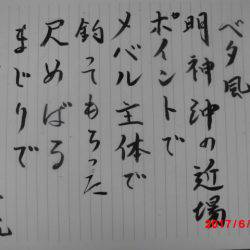 ベタ凪
明神沖の近場
ポイントで
メバル主体で
釣ってもらった
尺めばる
まじりで
2017/6/